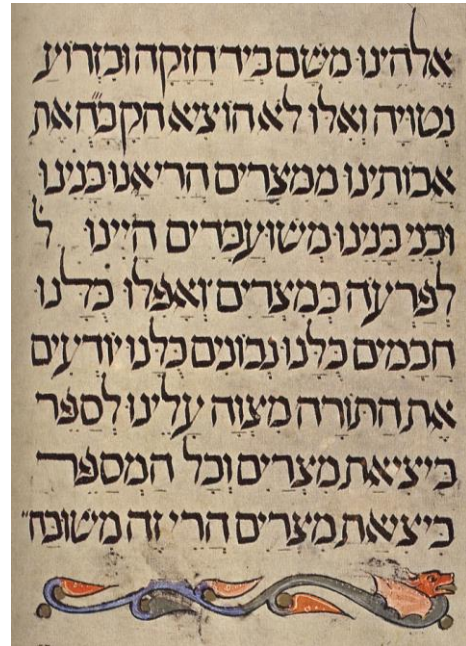 אלהינו משם ביד חזקה ובזרוע
נטויה ואלו לא הוציא הקב״ה את
אבותינו ממצרים הרי אנו בנינו
ובני בנינו משועבדים היינו ל
לפרעה במצרים ואפלו כלנו
חכמים כלנו נבונים כלנו יודעים
את התורה מצוה עלינו לספר
ביציאת מצרים וכל המספר
ביציאת מצרים הרי זה משובח